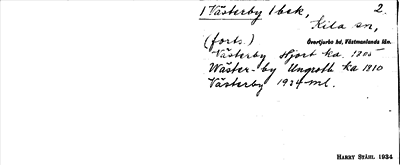 1 Västerby 1 bsk, 2.
Kila sn,
Övertjurbo hd, Västmanlands län.
(forts.)
Västerby Hjort ka. 1805
Wäster-by Ungroth ka 1810
Västerby 1934 ml.
HARRY STÅHL 1934